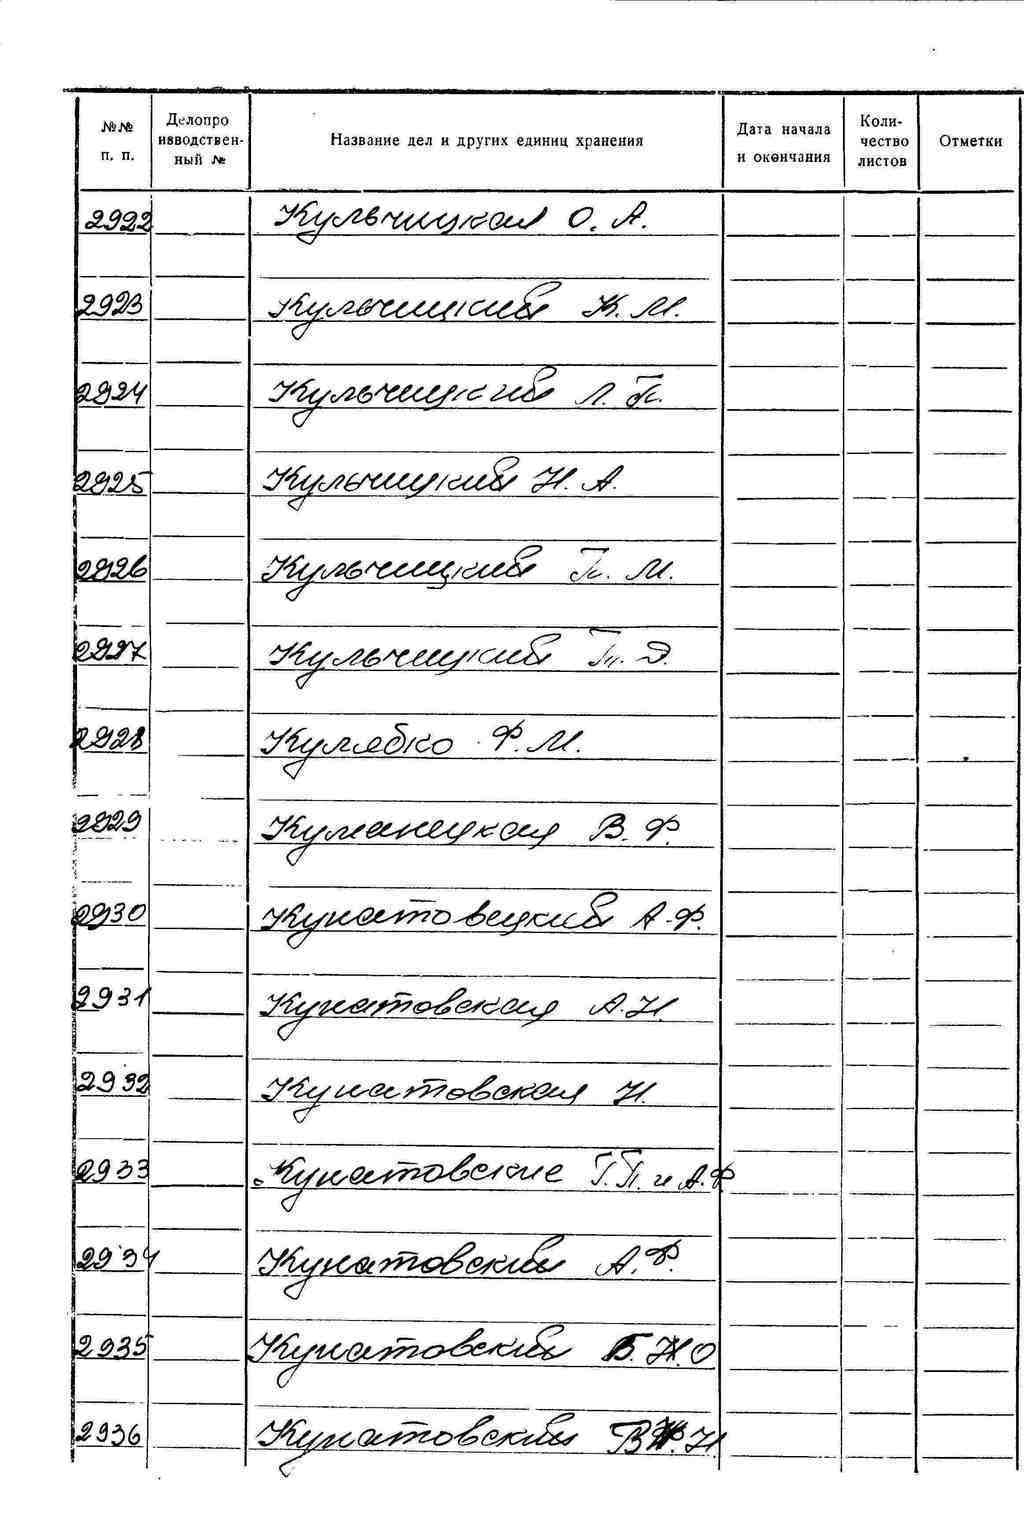 №№ п. п. Делопро изводствен- ный № Название дел и других единиц хранения Дата начала и окончания Коли- чество листов Отметки
2922 Кульчицкая О. А.
2923 Кульчицкий К. М.
2924 Кульчицкий Л. П.
2925 Кульчицкий Н. А.
2926 Кульчицкий П. М.
2927 Кульчицкий
2928 Кулябко Ф. М.
2929 Куманецкая В. Ф.
2930 А. Ф.
2931 Кунатовская А. Н.
2932 Кунатовская Н.
2933 Кунатовские Г. П. и А. Ф.
2934 Кунатовский А. Ф.
2935 Кунатовский
2936 Кунатовский